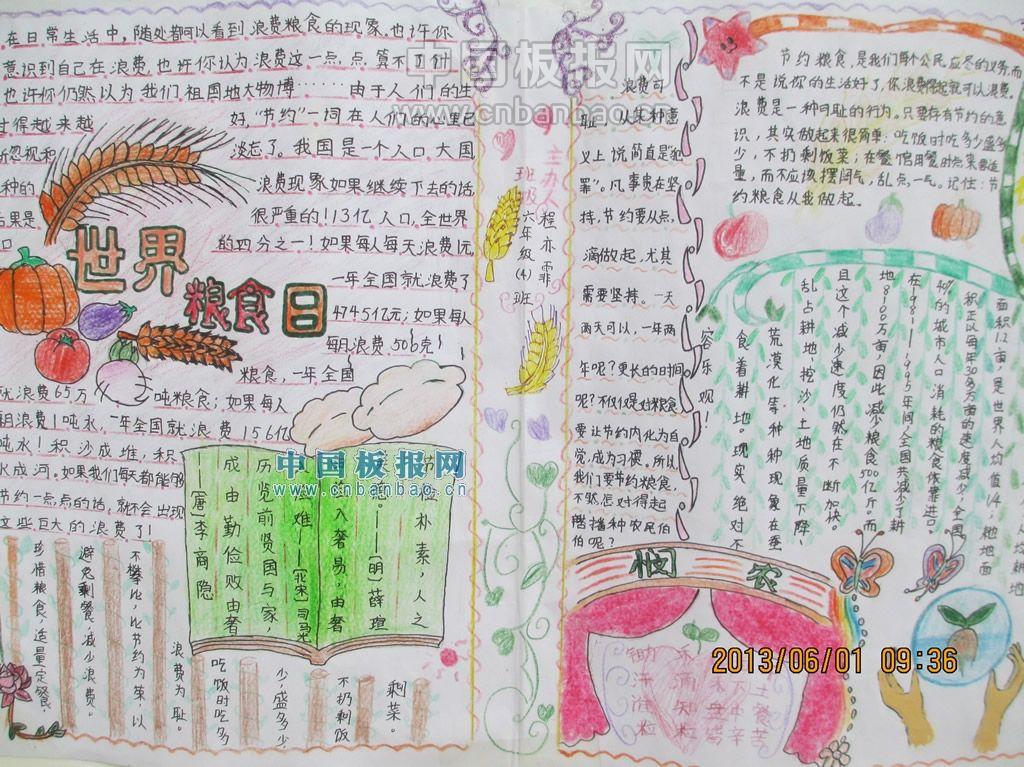 在日常生活中,随处都可以看到浪费粮食的现象.也许你
意识到自己在浪费,也许你认为浪费这一点,点,算不了什
也许你仍然以为我们祖国地大物博……由于人们的生
过得越来越
好,“节约”一词在人们的心里已
忽视和
淡忘了。我国是一个人口大国
种的
浪费现象如果继续下去的话
后果是
很严重的!13亿人口,全世界
口
的四分之一!如果每人每天浪费1元
一年全国就浪费了
4745亿元;如果每人
每月浪费506克
粮食,一年全国
就浪费65万
吨粮食;如果每人
浪费1吨水,一年全国就浪费156亿
吨水!积沙成堆,积
水成河。如果我们每天都能够
节约一点点的话,就不会出现
这些巨大的浪费了!
世界
粮食日
节朴素,人之
——(明)薛瑄
入奢易,由奢
难!——(北宋)司马光
历览前贤国与家,
成由勤俭败由奢
——(唐)李商隐
珍惜粮食,适量定餐,
避免剩餐,减少浪费。
不攀比,以节约为荣,以
浪费为耻
吃饭时吃多
少,盛多少
不扔剩饭
剩菜。
主办人
程亦霏
班级
六年级(4)班
浪费可
耻,从某种意
义上说简直是“犯
罪”。凡事贵在坚
持,节约要从点,
滴做起,尤其
需要坚持。一天
两天可以,一年两
年呢?更长的时间
呢?不仅仅是对粮食
要让节约内化为自
觉,成为习惯。所以
我们要节约粮食,
不然怎对得起
播种农民伯
伯呢?
节约粮食,是我们每个公民应尽的义务,而
不是说你的生活好了,你浪费得起就可以浪费。
浪费是一种可耻的行为。只要存有节约的意
识,其实做起来很简单:吃饭时吃多少盛多
少,不扔剩饭菜;在餐馆用餐时点菜要适
量,而不应该摆阔气,乱点,一气。记住:节
约粮食从我做起。
面积1.2亩,是世界人均值1/4,耕地面
积正以每年30多万亩的速度减少!全国
40%的城市人口消耗的粮食依靠进口。
在1981——1995年间,全国共减少了耕
地8100万亩,因此减少粮食500亿斤。而
且这个减少速度仍然在不断加快。
乱占耕地,挖沙、土地质量下降,
荒漠化等种种现象在蚕
食着耕地。现实绝对不
容乐观!
悯农
锄禾日当午
汗滴禾下土
谁知盘中餐
粒粒皆辛苦
中国板报网
www.cnbanbao.cn
中国板报网
www.cnbanbao.cn
2013/06/01 09:36